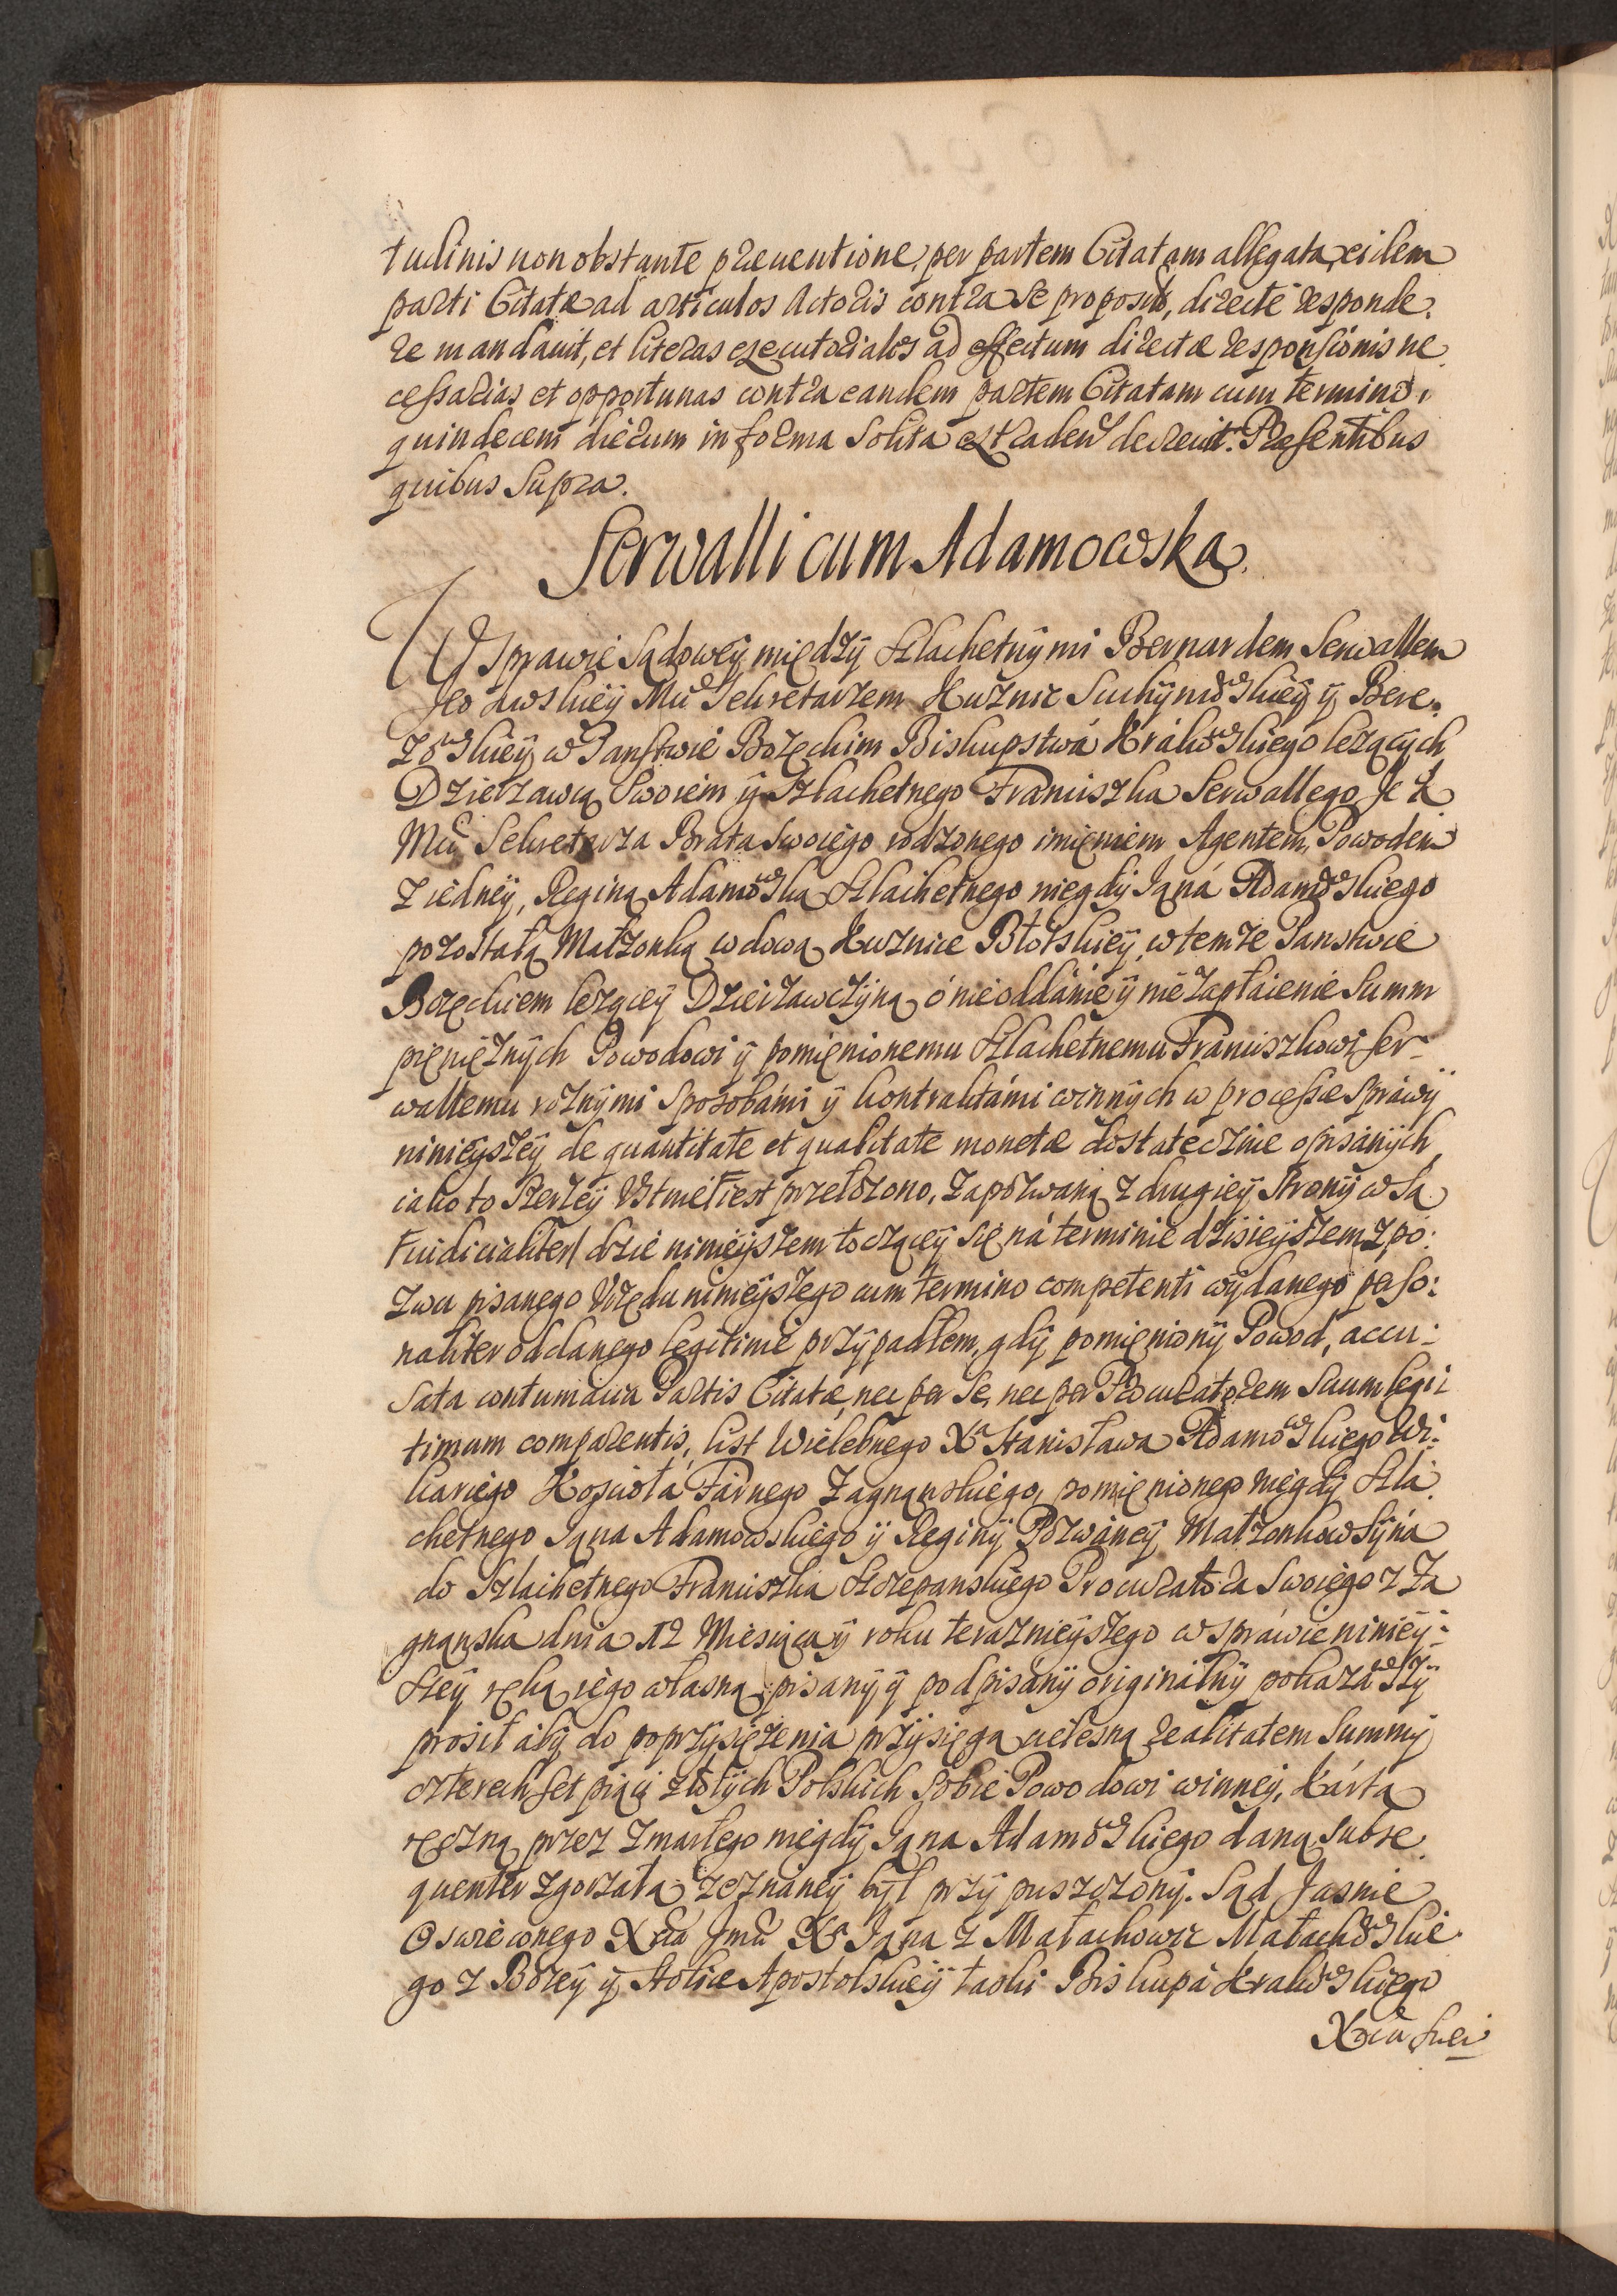 tudinis non obstante præuentione, per partem Citatam allegata, eidem
parti Citatæ ad articulos Actoris contra se propositos, directe responde:
re mandauit, et literas executoriales ad effectum directæ responsionis ne
cessarias et opportunas contra eandem partem Citatam cum termino
quindecem dierum in forma solita extraden decreuit. Præsentibus
quibus supra.
Serwalli cum Adamowska.
W Sprawie Sądowey między Szlachetnymi Bernardem Serwallem
Jeo Mci Sekretarzem Kuznic Suchyniowskiey y Bere:
zowskiey w Panstwie Bozęckim Biskupstwa Krakowskiego leżących
Dzierzawcą Swoiem y Szlachetnego Franciszka Serwallego Je K
Mci Sekretarza Brata Swoiego rodzonego imięniem Agentem, Powodem
z iedney, Reginą Adamowską Szlachetnego niegdy Iana Adamowskiego
pozostałą Małżonką wdową Kuznice Błotskiey, w temze Panstwie
Bozęckiem leżącey Dzierżawczyną o nieoddanie y niezapłacenie Summ
pięniężnych Powodowi y pomięnionemu Szlachetnemu Franciszkowi Ser-
wallemu roznymi Sposobámi y kontraktámi winnych w processie spráwy
ninieyszey de quantitate et qualitate monetæ dostatecznie opisánych
iako to Szerzey Vstnie iest przełożono, zapozwaną z drugiey Strony w Są
Iudicialiter/ dzie ninieyszem toczącey się ná terminie dzisieyszem z po:
zwu pisanego Vrzędu ninieyszego cum termino competenti wydanego perso:
naliter oddanego legitime przypadłem, gdy pomięniony Powod, accu:
sata contumacia Partis Citatæ, nec per se, nec per Procuratorem suum legi:
timum comparentis, list Wielebnego Xa Stanisława Adamowskiego Wi:
kariego Kościoła Fárnego Zagnąnskiego, pomięnionego niegdy Szla
chetnego Iana Adamowskiego y Reginy Pozwáney Małżonkow Syná
do Szlachetnego Franciszka Szczepanskiego Procuratora Swoiego z Za
gnąnska dnia 12 Miesiąca y roku teraznieyszego w spráwie niniey:
szey ręką iego własną pisany y podpisány originalny pokazawszy
prosił aby do poprzysiężenia przysięgą cielesną realitatem Summy
czterechset pięci złotych Polskich sobie Powodowi winney, Kártą
ręczną przez zmarłego niegdy Iana Adamowskiego daną subse:
quenter zgorzałą zeznáney był przypuszczony. Sąd Jasnie
Oswieconego Xcia Jmci Xa Iana z Małachowic Małachowskie
go z Bożey y Stolice Apostolskiey łaski Biskupa Krakowskiego
Xcia